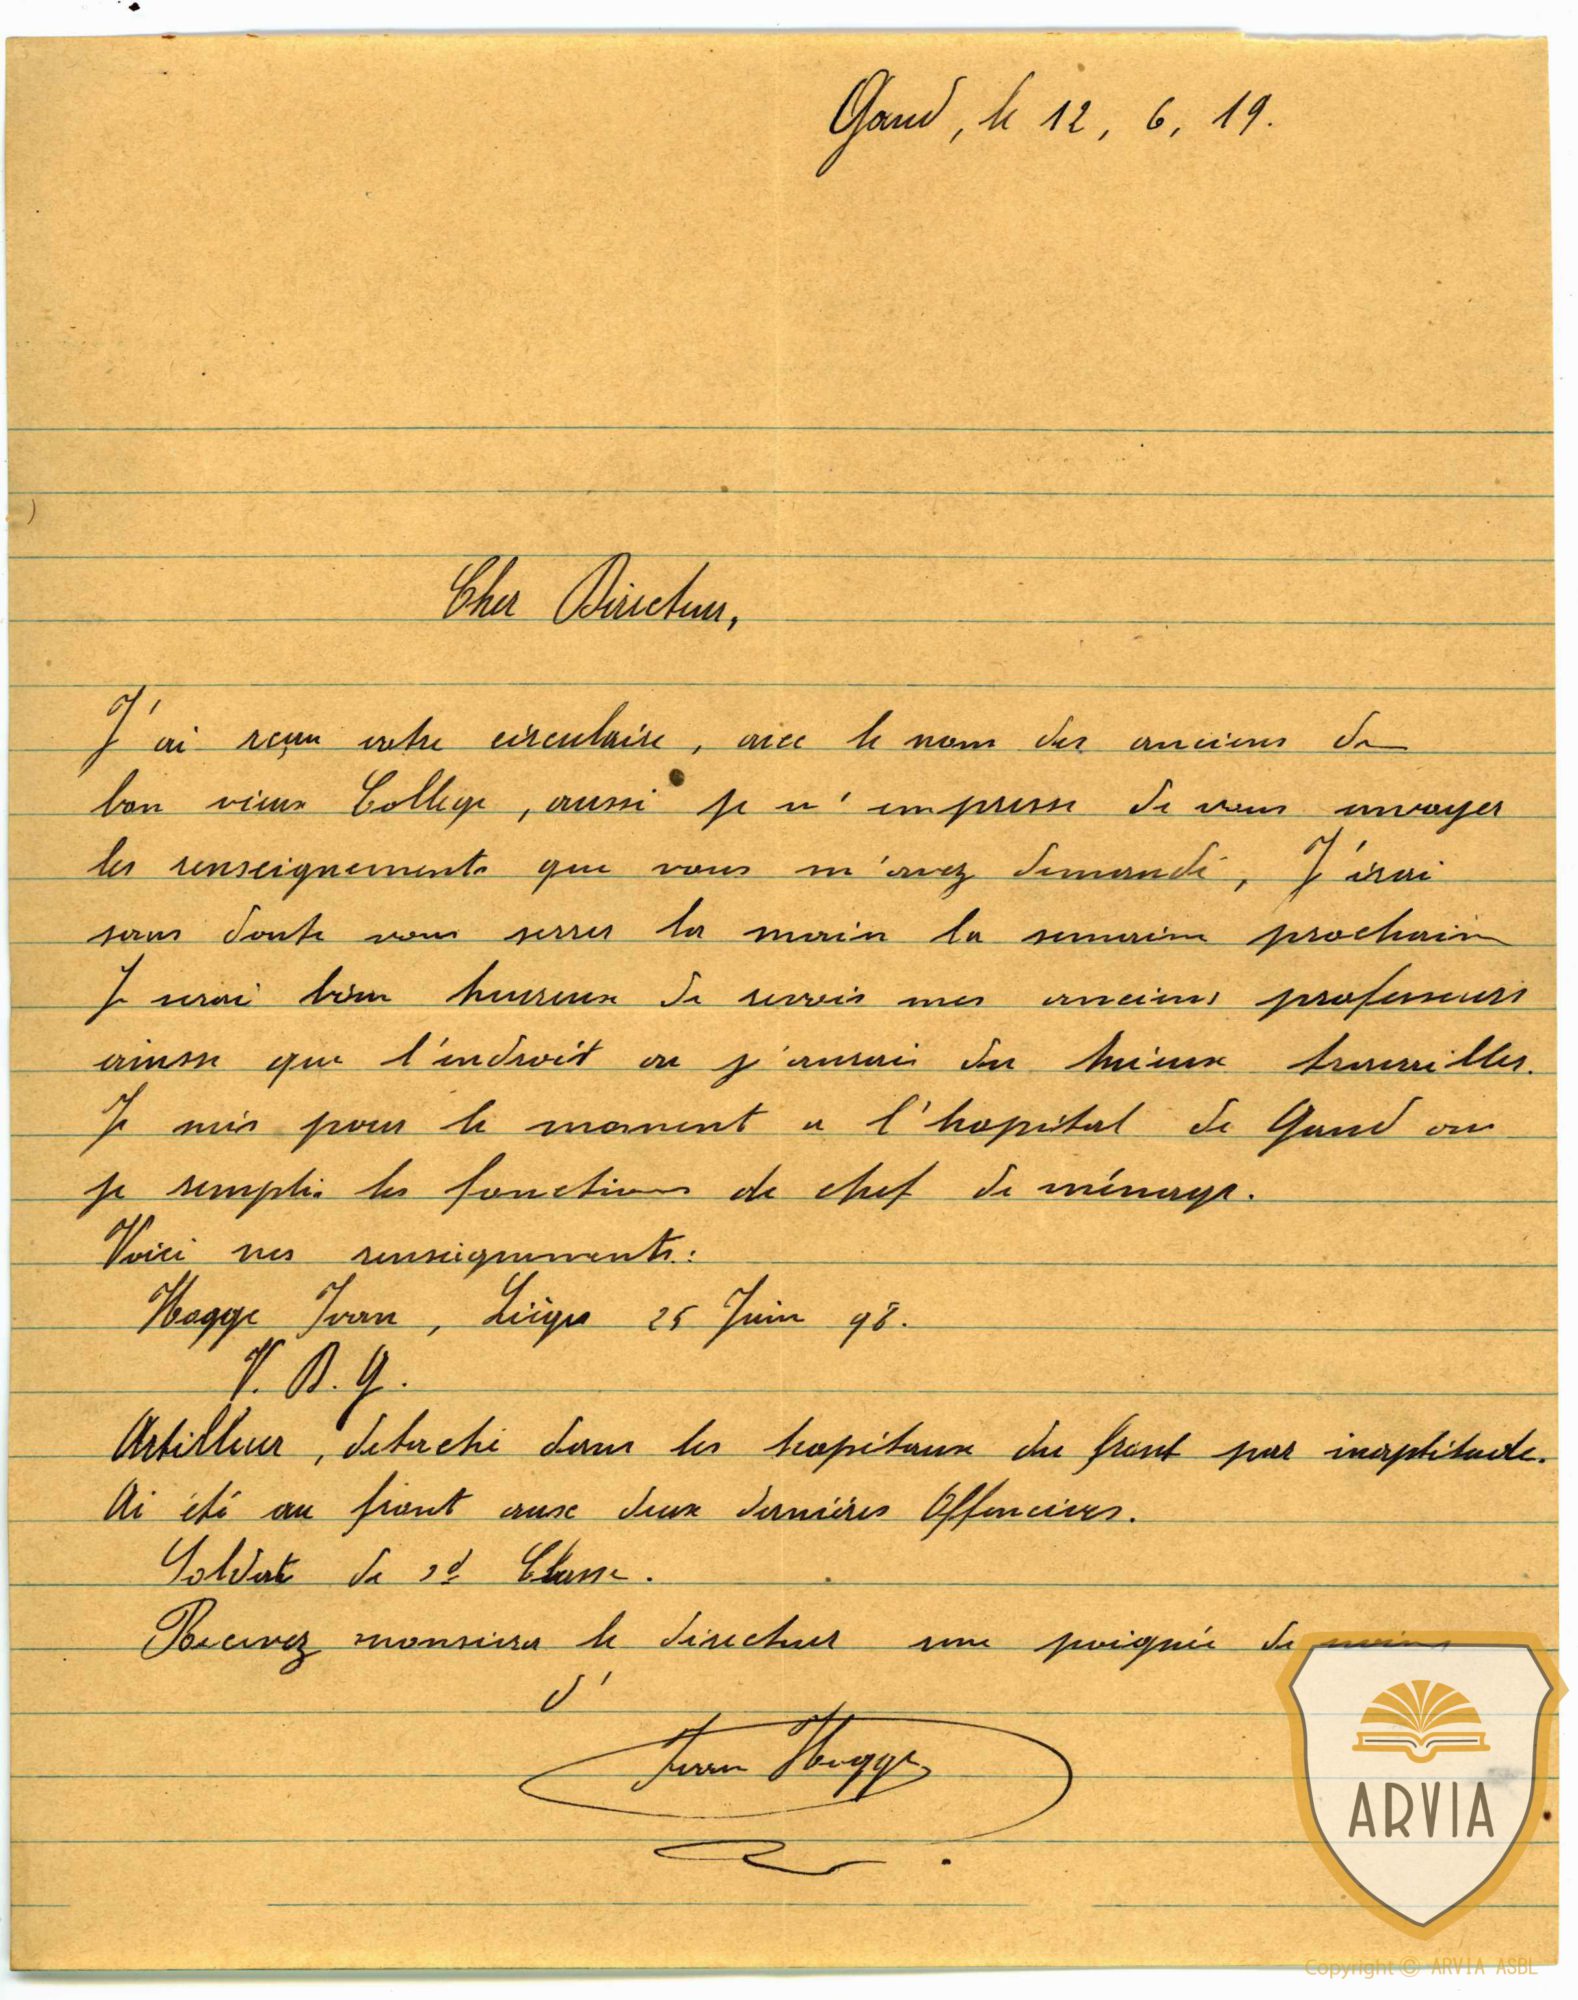 Gand, le 12, 6, 19.
Cher Directeur,
J'ai reçu votre circulaire, avec le nom des anciens de
bon vieux College, aussi je m'empresse de vous envoyer
les renseignements que vous m'avez demandé, J'irai
sans doute vous serrer la main la semaine prochaine
Je serai bien heureux de revoir mes anciens professeurs
ainsse que l'endroit ou j'aurai du mieux travailler.
Je suis pour le moment a l'hopital de Gand ou
je remplis les fonctions de chef de ménage.
Voici mes renseignements:
Hogge Ivan, Liège 25 Juin 98.
V. D. G.
Artilleur, détaché dans les hopitaux du front par inaptitude.
Ai été au front aux deux dernières Offencives.
Soldat de 2d Classe.
Recevez monsieur le directeur une poignée de mains
d'
Ivan Hogge
ARVIA
Copyright © ARVIA ASBL